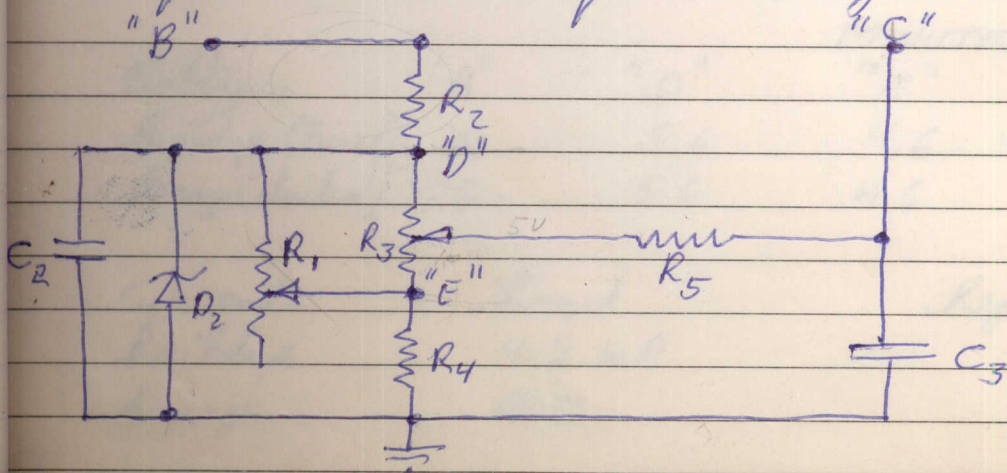 "B"
"C"
R2
"D"
5V
C2
R1
R3
R5
"E"
D2
R4
C3